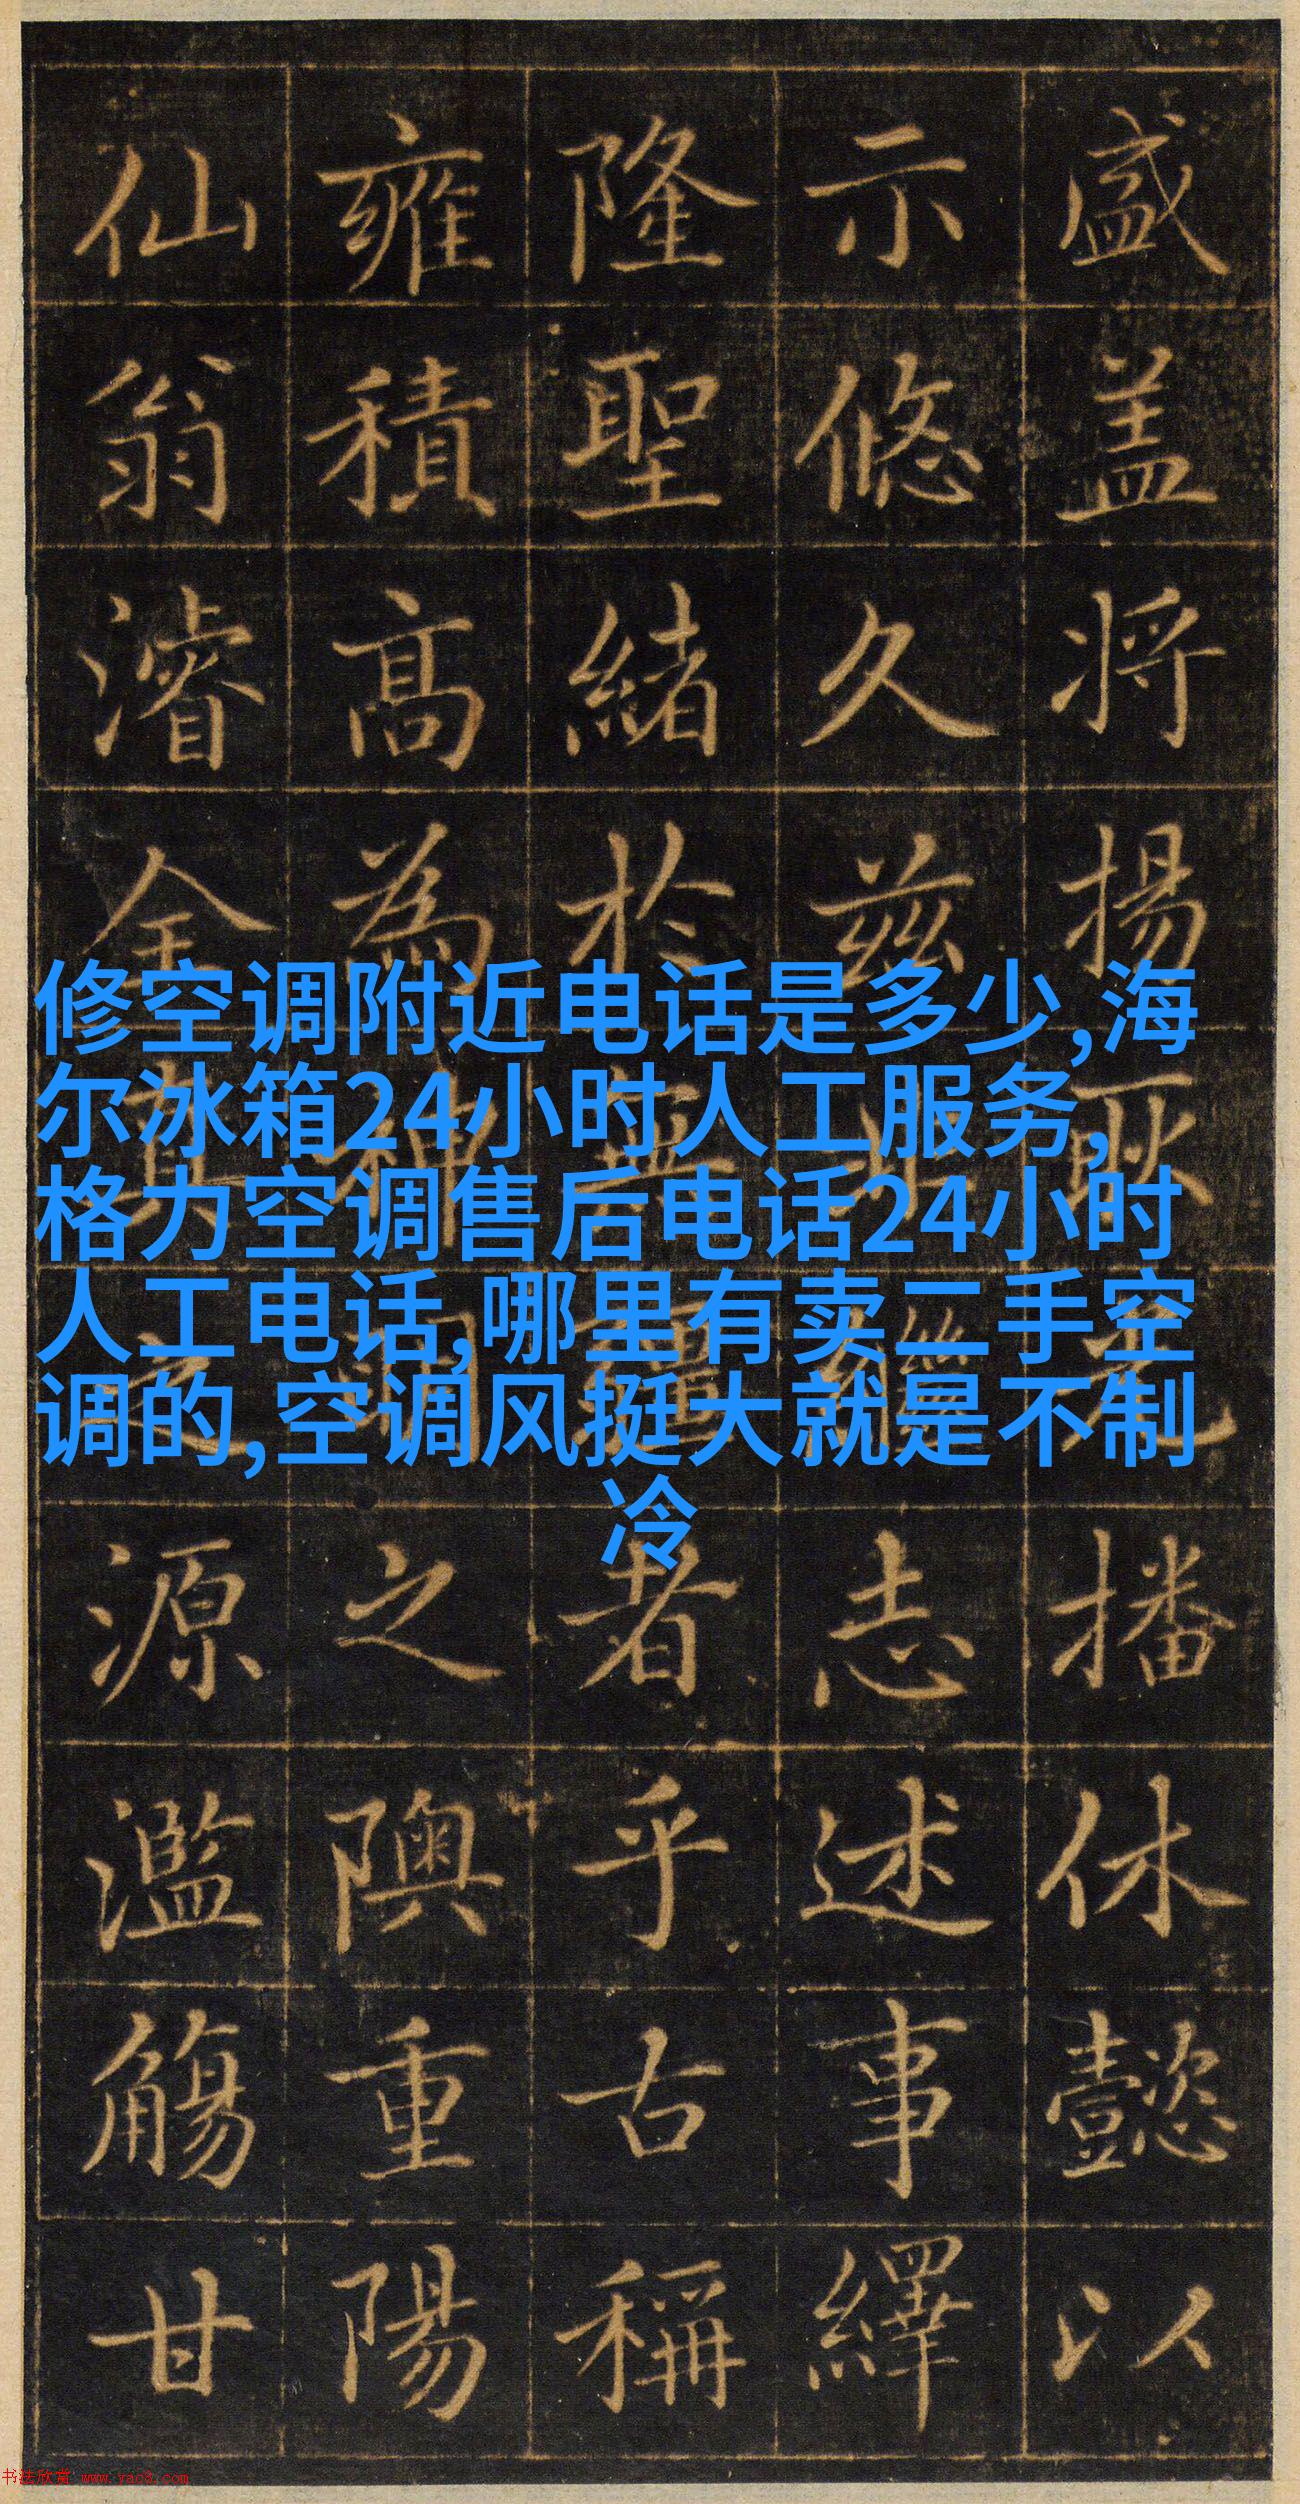 盛盖将揚耿光播休懿以
示悠久兹繼志述事繹
隆聖緒於無疆者乎古稱
雍積高為神明之隩重陽
仙翁濬全真之源濫觴甘
修空调附近电话是多少,海
尔冰箱24小时人工服务,
格力空调售后电话24小时
人工电话,哪里有卖二手空
调的,空调风挺大就是不制
冷
书法欣赏 www.yac8.com